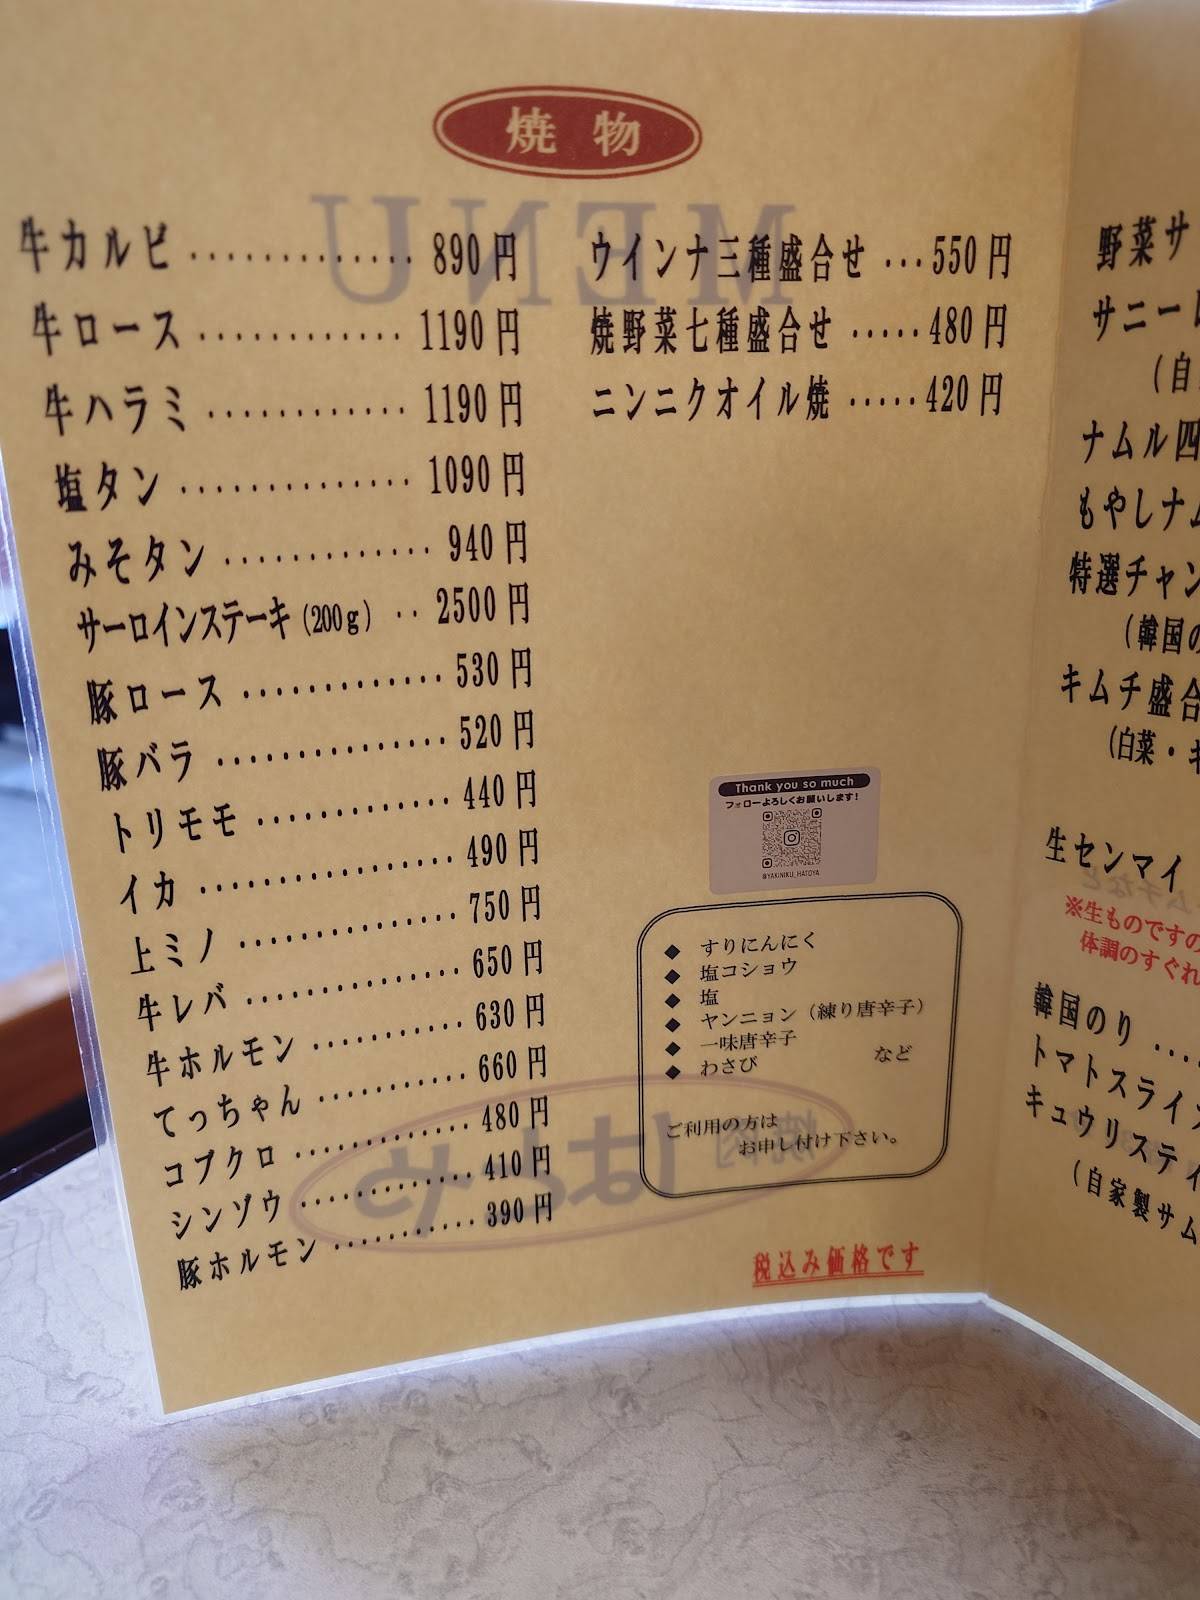 焼物
牛カルビ ............. 890円
牛ロース ............ 1190円
牛ハラミ ............ 1190円
塩タン .............. 1090円
みそタン ............. 940円
サーロインステーキ(200g) .. 2500円
豚ロース ............. 530円
豚バラ ............... 520円
トリモモ ............. 440円
イカ ................. 490円
上ミノ ............... 750円
牛レバ ............... 650円
牛ホルモン ........... 630円
てっちゃん ........... 660円
コブクロ ............. 480円
シンゾウ ............. 410円
豚ホルモン ........... 390円
ウインナ三種盛合せ ... 550円
焼野菜七種盛合せ ..... 480円
ニンニクオイル焼 ..... 420円
Thank you so much
フォローよろしくお願いします!
@YAKINIKU_HATOYA
◆ すりにんにく
◆ 塩コショウ
◆ 塩
◆ ヤンニョン(練り唐辛子)
◆ 一味唐辛子
◆ わさび など
ご利用の方は
お申し付け下さい。
税込み価格です
野菜サ
サニー
(自
ナムル四
もやしナム
特選チャン
(韓国の
キムチ盛合
(白菜・キ
生センマイ
※生ものですの
体調のすぐれ
韓国のり ....
トマトスライ
キュウリスティ
(自家製サム
MENU
焼肉
はとや